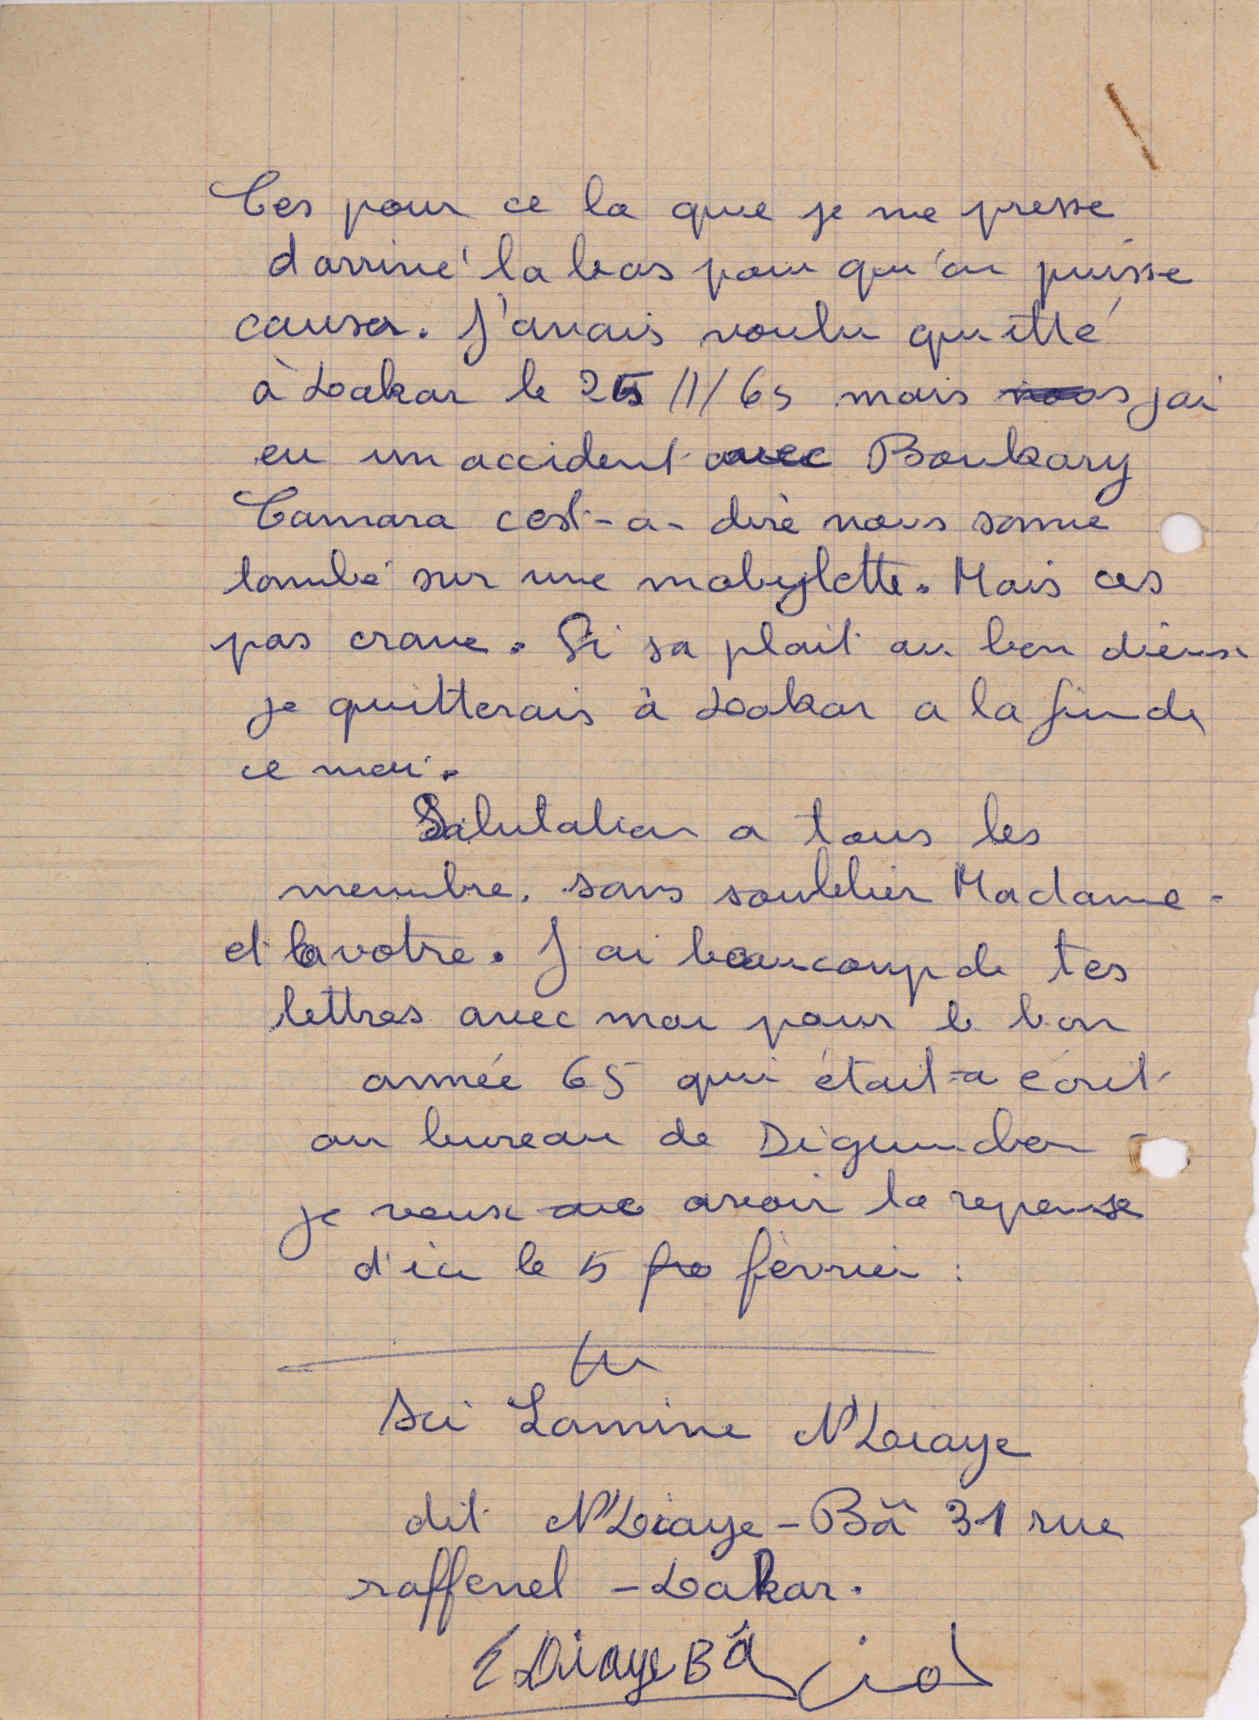 Ces pour ce la que je me presse
d'arrivé la bas pour qu'on puisse
causer. J'avais voulu quitté
à Dakar le 25/1/65 mais jai
eu un accident avec Boukary
Camara cest-a-dire nous somme
tombé sur une mobylette. Mais ces
pas crave. Si sa plait au bon dieux
je quitterais à Dakar a la fin de
ce moi.
Salutation a tous les
membre. sans soublier Madame -
et la votre. J'ai beaucoup de tes
lettres avec moi pour le bon
année 65 qui était-a écrit
au bureau de
je veux avoir la reponse
d'ici le 5 février :
Lamine N'Diaye
dit N'Diaye-Bâ 31 rue
raffenel - Dakar.
Diaye Bâ